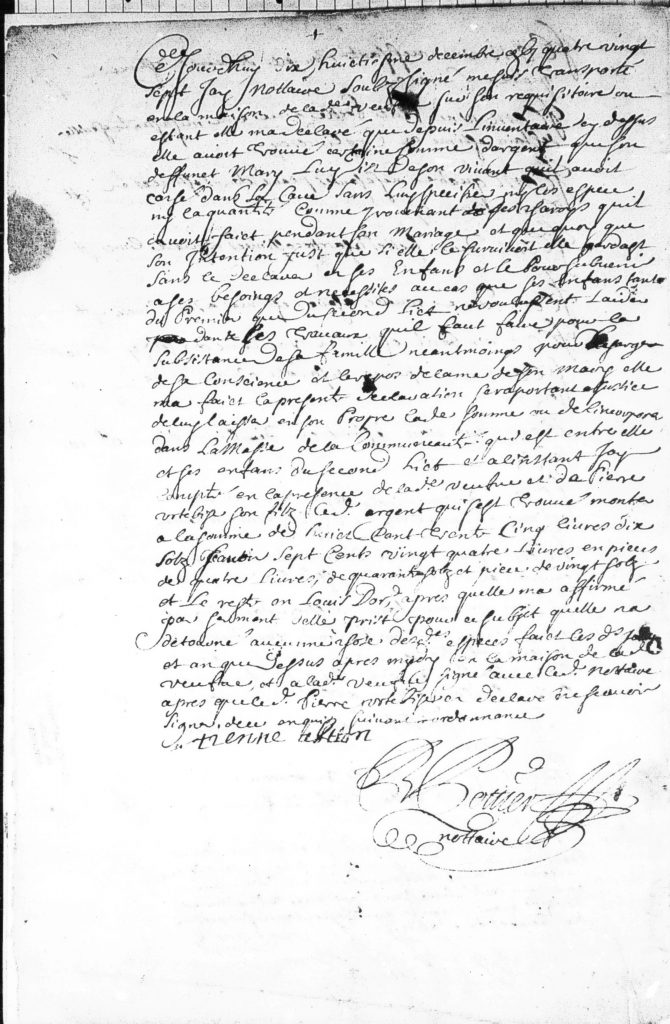 Ce Jourdhuy dix huictiesme decembre gbi quatre vingt
sept Jay Nottaire Soubz signé me suis transporté
en la maison de lad. veufve sur son requisitoire ou
estant elle ma declaré que depuis L'inventaire cy dessus
elle avoit trouvé certaine somme dargent que son
deffunct Mary luy dit de son vivant quil avoit
dans La Cave sans luy specifier ny les espece
ny la quantité comme provenant des esparons quil
avoit faict pendant son Mariage et que quoy que
son Intention fust que si elle le survivoit elle gardast
sans le declarer a ses Enfans et le pour subvenir
a ses besoings et necessites au cas que ses enfans tant
du Premier que du second Lict ne voulussent laider
dans les travaux quil faut faire pour la
subsistance de sa famille neantmoings pour
de sa Conscience et le repos de lame de son Mary elle
ma faict la presente declaration se raportant a Justice
de luy laisser en son Propre lad. somme ou de lincorporer
dans La Masse de la Communeauté qui est entre elle
et ses enfans du second Lict et a linstant Jay
compté en la presence de lad. veufve et de Pierre
son filz led. argent qui sest trouvé monter
a la somme de huict Cent trente Cinq livres dix
solz scavoir sept Cents vingt quatre Livres en pieces
de quatre livres, de quarante solz et piece de vingt solz
et Le reste en Louis Dor, apres quelle ma affirmé
par serment delle prist pour ce subjet quelle na
détourné aucunne chose desd. especes faict les d. jour
et an que dessus apres midy en la maison de lad.
veufve, et a lad. veufve signé avec led. Nottaire
apres que led. Pierre a declaré ne scavoir
signer de ce enquis suivant lordonnance
Etienne
Pottier
nottaire